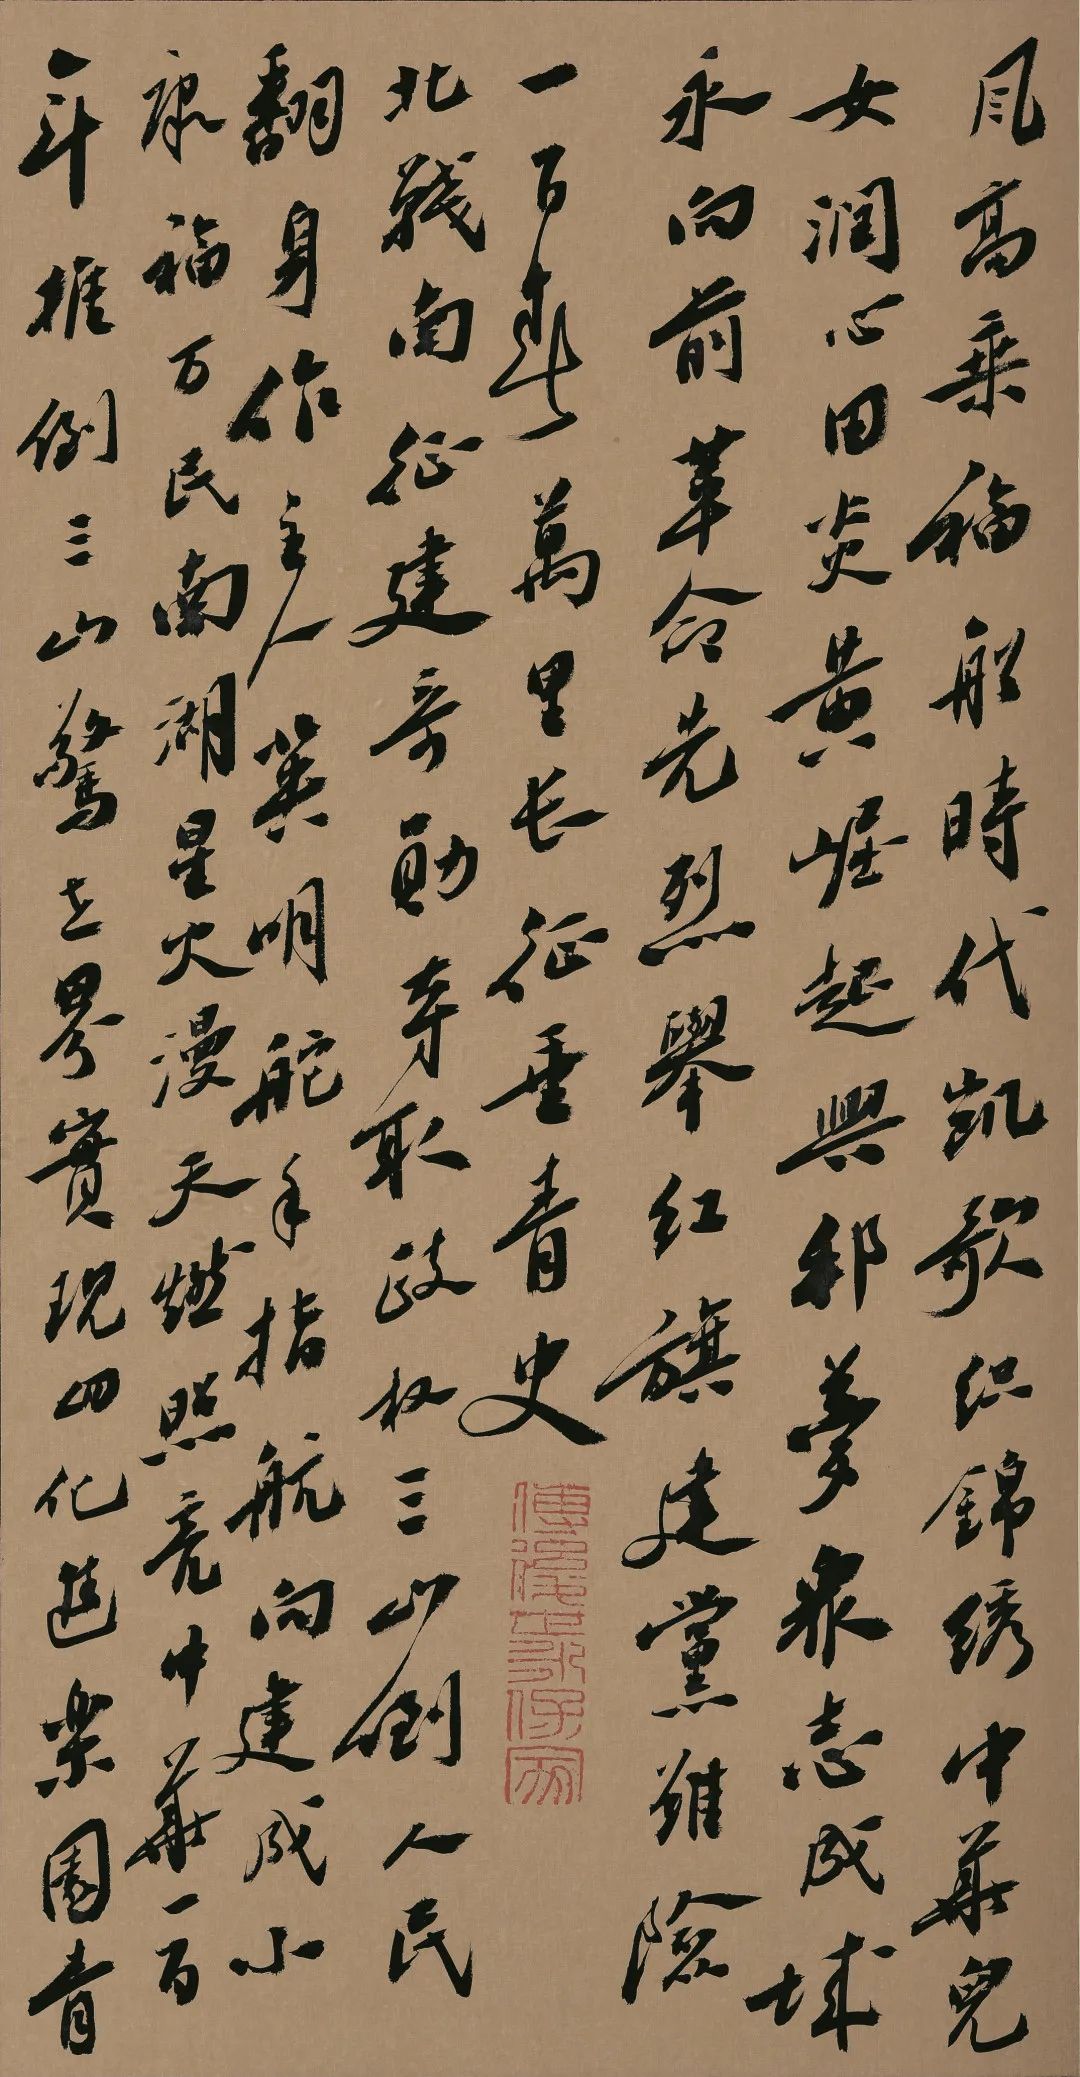 风高乘福船時代凯歌织錦绣中華兒
女润心田炎黄崛起興邦夢眾志成城
永向前革命先烈舉红旗建黨險
一百萬里长征垂青史
北戰南征建奇勋夺取政权三山倒人民
翻身作主人英明舵手指航向建成小
康福万民南湖星火漫天燃照亮中華一百
年推倒三山驚世界實现四化進樂園青